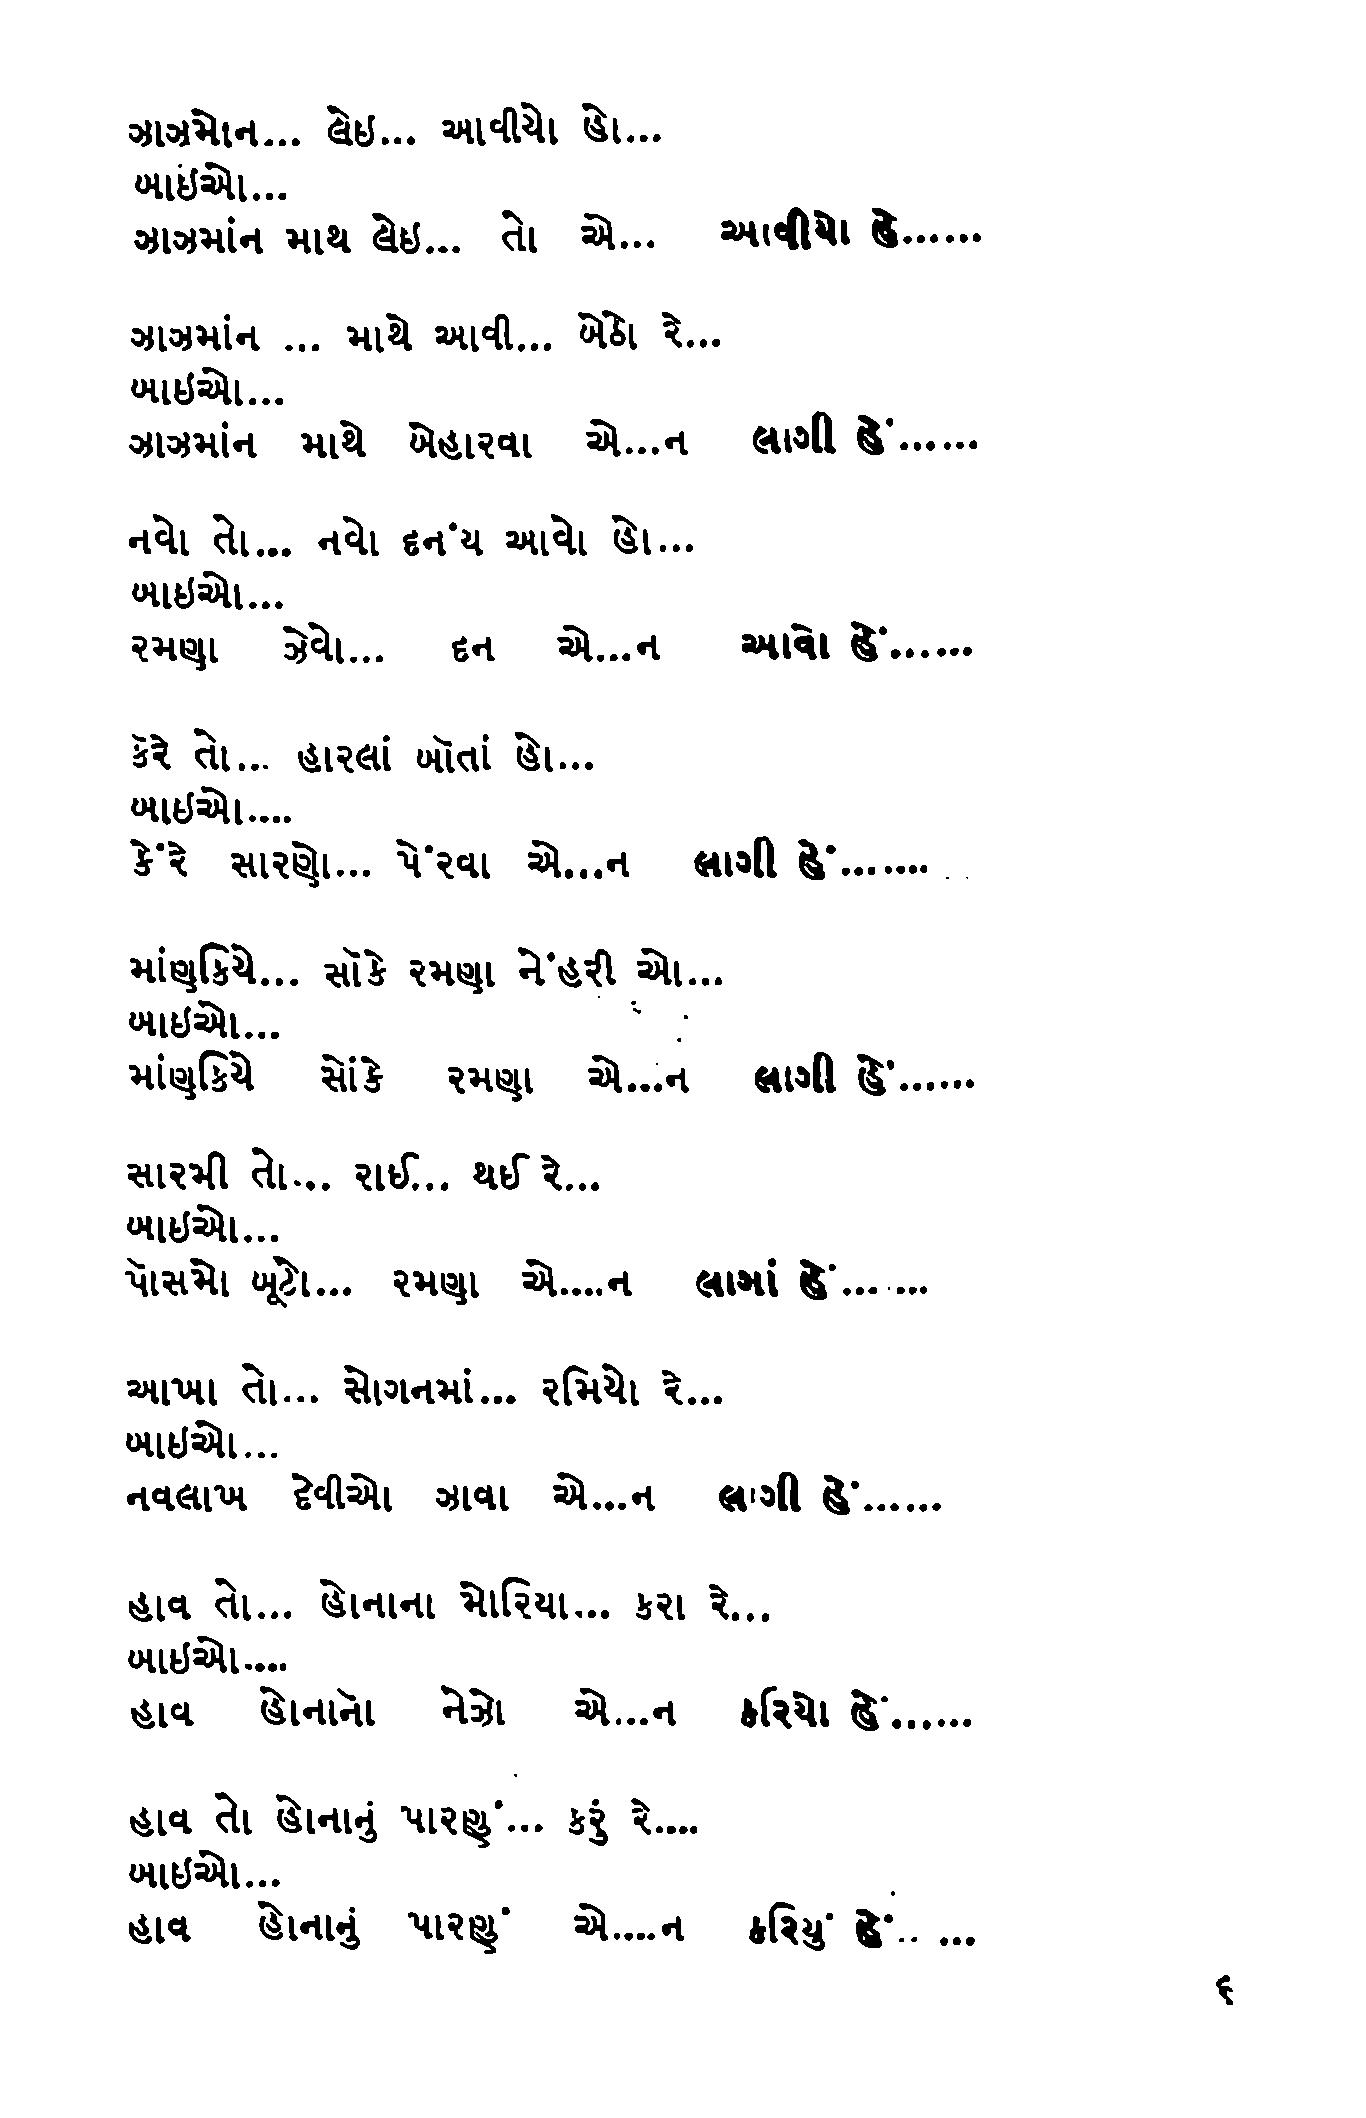 ઝાઝમોન... લેઇ... આવીયો હો...
બાઇઓ...
ઝાઝમાંન માથ લેઇ... તો એ... આવીયો હેં......
ઝાઝમાંન ... માથે આવી... બેઠો રે...
બાઇઓ...
ઝાઝમાંન માથે બેહારવા એ...ન લાગી હેં......
નવો તો... નવો દનંય આવો હો...
બાઇઓ...
રમણા ઝેવો... દન એ...ન આવો હેં......
કૅરે તો... હારલાં બૉતાં હો...
બાઇઓ....
કેંરે સારણો... પેંરવા એ...ન લાગી હેં.......
માંણકિયે... સૉકે રમણા નેંહરી ઓ...
બાઇઓ...
માંણકિયે સોંકે રમણા એ...ન લાગી હેં......
સારમી તો... રાઈ... થઈ રે...
બાઇઓ...
પૉસમો બૂટો... રમણા એ....ન લામાં હેં......
આખા તો... સોગનમાં... રમિયો રે...
બાઇઓ...
નવલાખ દેવીઓ ઝાવા એ...ન લાગી હેં......
હાવ તો... હોનાના મોરિયા... કરા રે...
બાઇઓ....
હાવ હોનાનૉ નેઝો એ...ન કરિયો હેં......
હાવ તો હોનાનું પારણું... કરું રે....
બાઇઓ...
હાવ હોનાનું પારણું એ....ન કરિયું હેં.. ...
૬